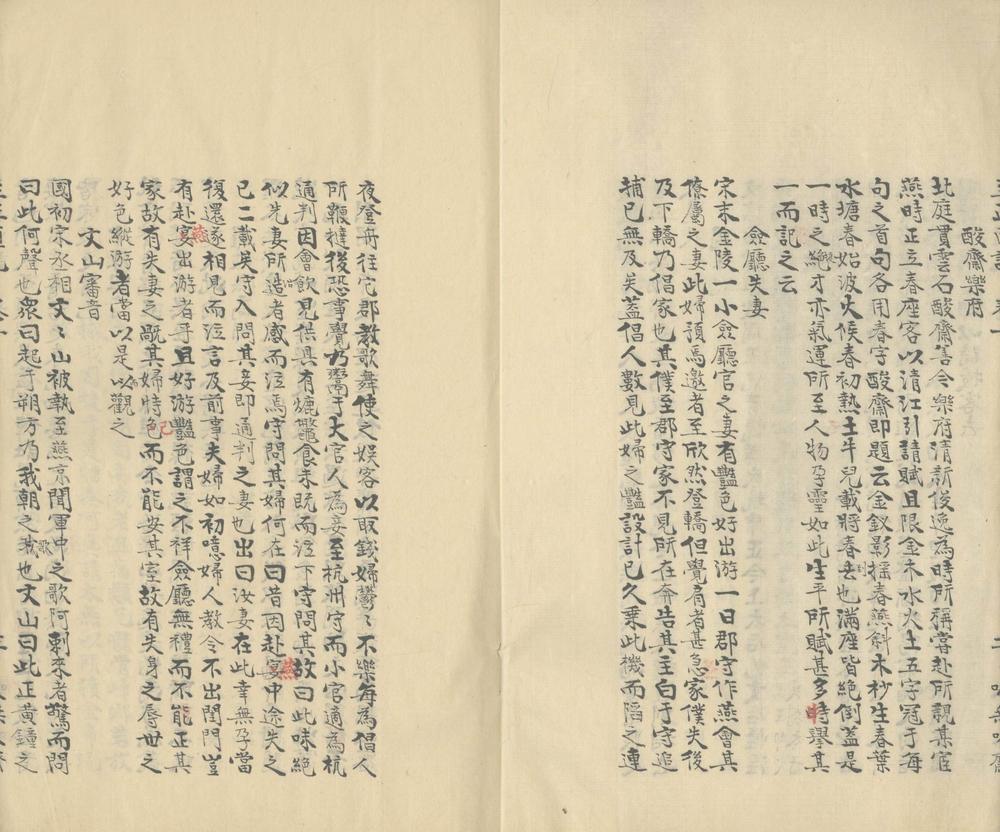 酸齋樂府
北庭貫雲石酸齋善今樂府清新俊逸為時所稱嘗赴所親某宦
燕時正立春座客以清江引請賦且限金木水火土五字冠于每
句之首句各用春字酸齋即題云金釵影搖春燕斜木杪生春葉
水塘春始波火候春初熱土牛兒載將春去也滿座皆絕倒蓋是
一時之絕才亦氣運所至人物孕靈如此生平所賦甚多時舉其
一而記之云
僉廳失妻
宋末金陵一小僉廳官之妻有豔色好出游一日郡守作燕會其
僚屬之妻此婦預焉邀者至欣然登轎但覺肩者甚急家僕失後
及下轎乃倡家也其僕至郡守家不見所在奔告其主白于守追
捕已無及矣蓋倡人數見此婦之豔設計已久乘此機而陷之連
夜登舟往它郡教歌舞使之娱客以取錢婦鬱〻不樂每為倡人
所鞭撻後恐事覺乃鬻于大官人為妾至杭州守而小官適為杭
通判因會飲見供具有燋鼈食未既而泣下守問其故曰此味絕
似先妻所造者感而泣焉守問其婦何在曰昔因赴宴中途失之
已二載矣守入問其妾即通判之妻也出曰汝妻在此幸無孕當
復還遂相見而泣言及前事夫婦如初噫婦人教令不出閨門豈
有赴宴出游者乎且好游豔色謂之不祥僉廳無禮而不能正其
家故有失妻之厭其婦恃色而不能安其室故有失身之辱世之
好色縱游者當以是以觀之
文山審音
國初宋丞相文〻山被執至燕京聞軍中之歌阿剌來者驚而問
曰此何聲也衆曰起于朔方乃我朝之歌也文山曰此正黃鐘之